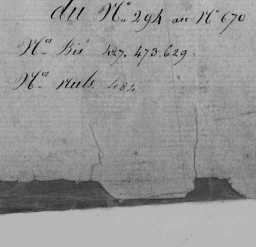 du N° 294 au N° 670
Nos Bis 427. 473. 629.
Nos nuls. 484